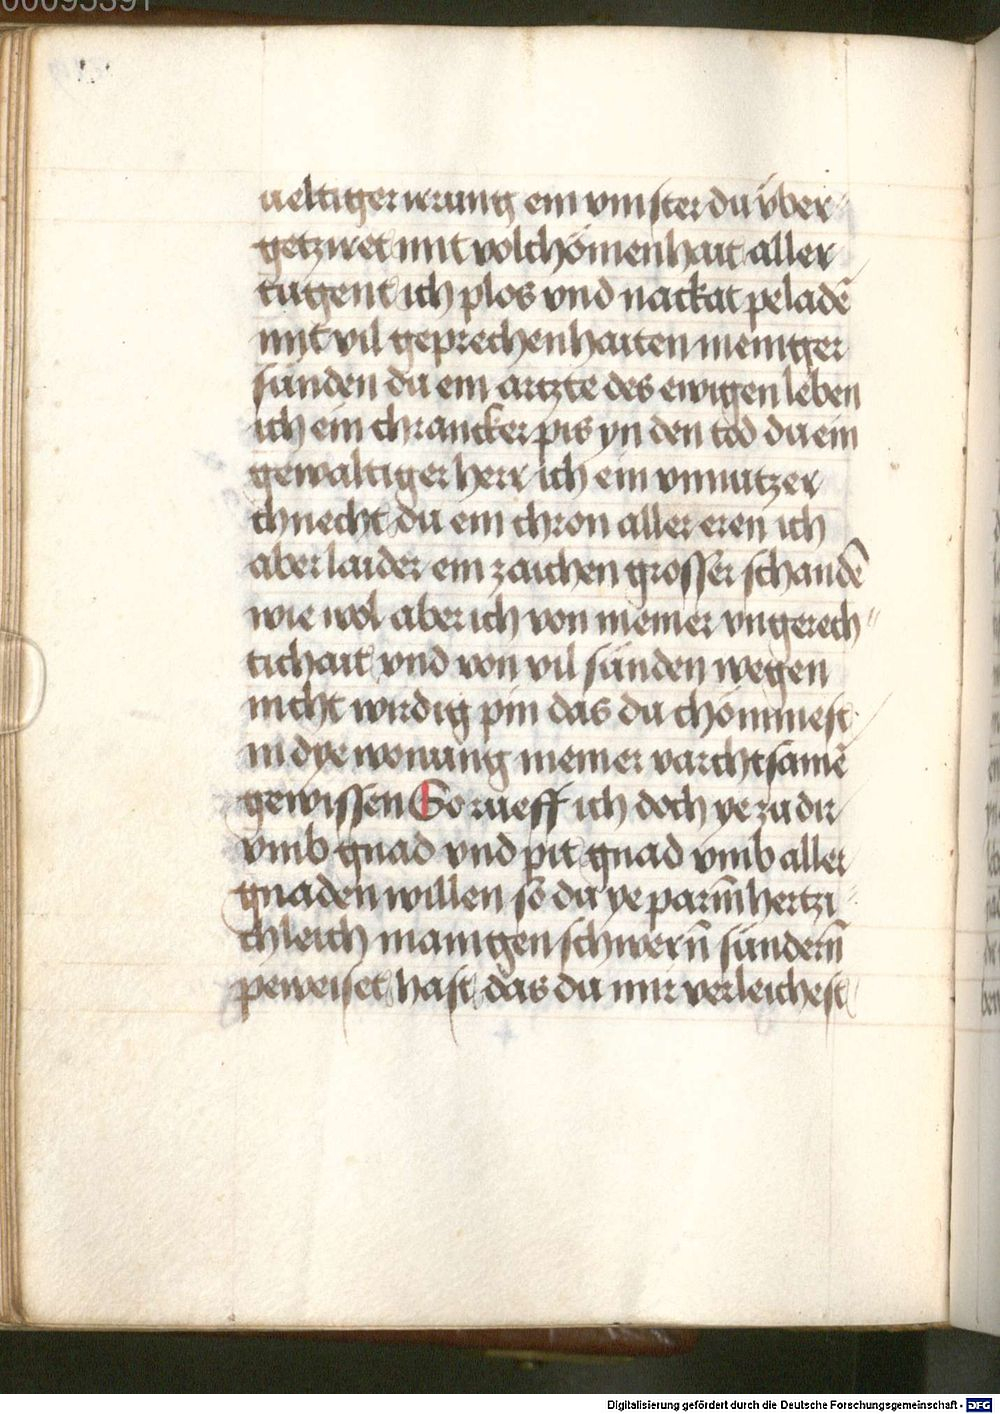 ueltiger irrung ein vinster du vber
getziret mit volchömenhait aller
tugent ich plos vnd nackat peladē
mit vil geprechenhaiten meniger
sünden du ein artzte des ewigen leben
ich ein chrancker pis yn den tod du ein
gewaltiger herr ich ein vnnutzer
chnecht du ein chron aller eren ich
aber laider ein zaichen grosser schandē
wie wol aber ich von meiner vngerech
tichait vnd von vil sünden wegen
nicht wirdig pin das du chömmest
in dye wonung meiner varchtsamē
gewissen So rueff ich doch ye zu dir
vmb gnad vnd pit gnad vmb aller
gnaden willen so du ye parmhertzi
chleich manigen schwern̄ sündern̄
peweiset hast das du mir verleichest
Digitalisierung gefördert durch die Deutsche Forschungsgemeinschaft - DFG